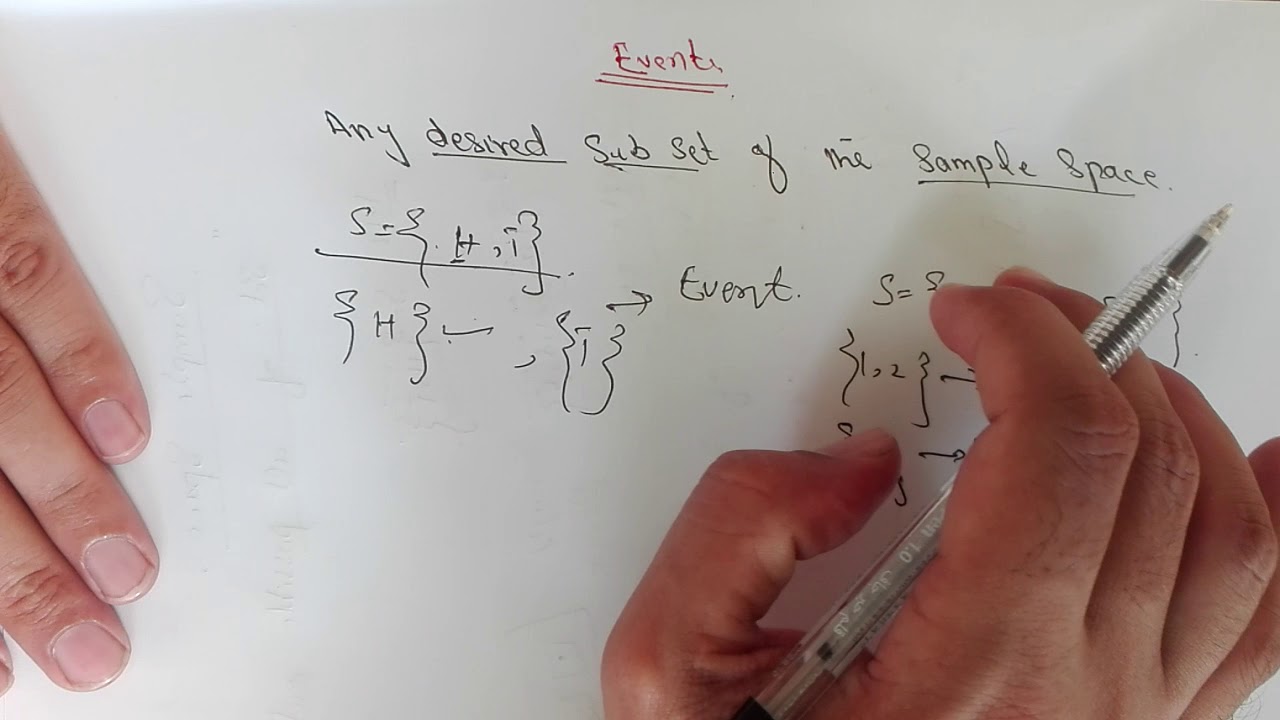 Events
Any desired Sub Set of the Sample Space.
S={H,T}
{H} , {T} → Event.
S={
{1,2} →
→